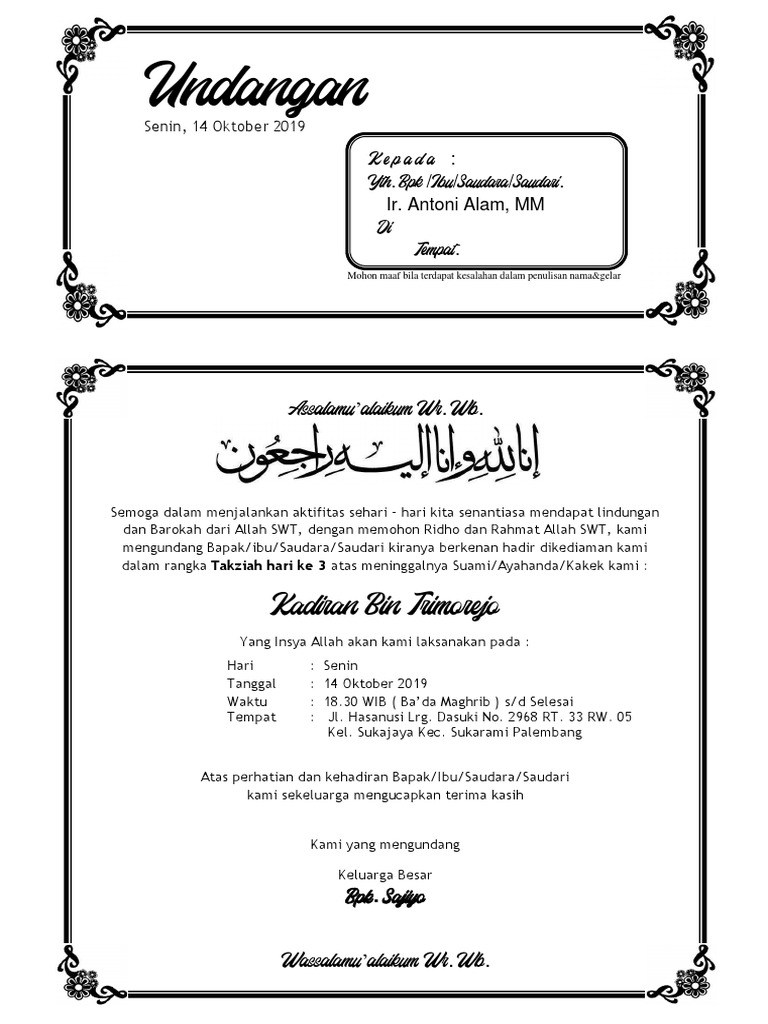 Undangan
Senin, 14 Oktober 2019
Kepada :
Yth. Bpk /Ibu/Saudara/Saudari.
Ir. Antoni Alam, MM
Di
Tempat.
Mohon maaf bila terdapat kesalahan dalam penulisan nama&gelar
Assalamu'alaikum Wr. Wb.
إنا لله وإنا إليه راجعون
Semoga dalam menjalankan aktifitas sehari - hari kita senantiasa mendapat lindungan
dan Barokah dari Allah SWT, dengan memohon Ridho dan Rahmat Allah SWT, kami
mengundang Bapak/ibu/Saudara/Saudari kiranya berkenan hadir dikediaman kami
dalam rangka Takziah hari ke 3 atas meninggalnya Suami/Ayahanda/Kakek kami :
Kadiran Bin Trimorejo
Yang Insya Allah akan kami laksanakan pada :
Hari : Senin
Tanggal : 14 Oktober 2019
Waktu : 18.30 WIB ( Ba'da Maghrib ) s/d Selesai
Tempat : Jl. Hasanusi Lrg. Dasuki No. 2968 RT. 33 RW. 05
Kel. Sukajaya Kec. Sukarami Palembang
Atas perhatian dan kehadiran Bapak/Ibu/Saudara/Saudari
kami sekeluarga mengucapkan terima kasih
Kami yang mengundang
Keluarga Besar
Bpk. Sajiyo
Wassalamu'alaikum Wr. Wb.